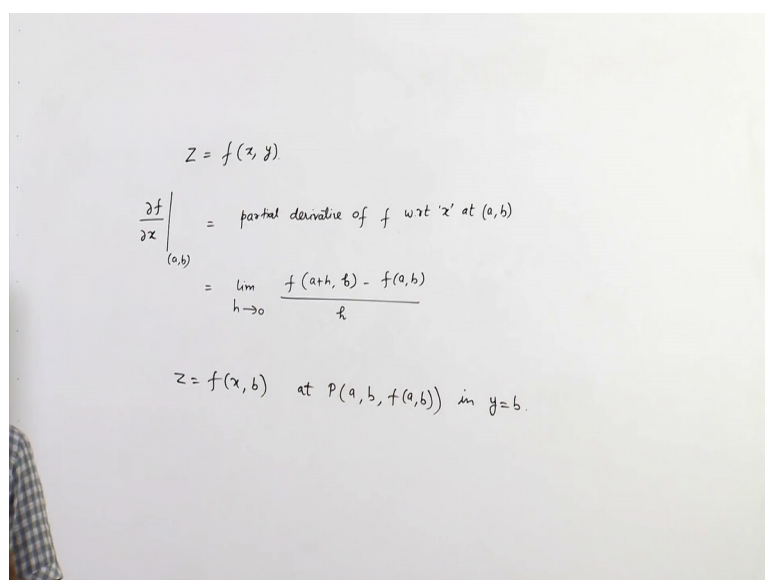 z = f(x, y)
∂f/∂x |(a,b) = partial derivative of f w.r.t 'x' at (a,b)
= lim h→0 f(a+h, b) - f(a,b) / h
z = f(x, b) at P(a, b, f(a,b)) in y=b.